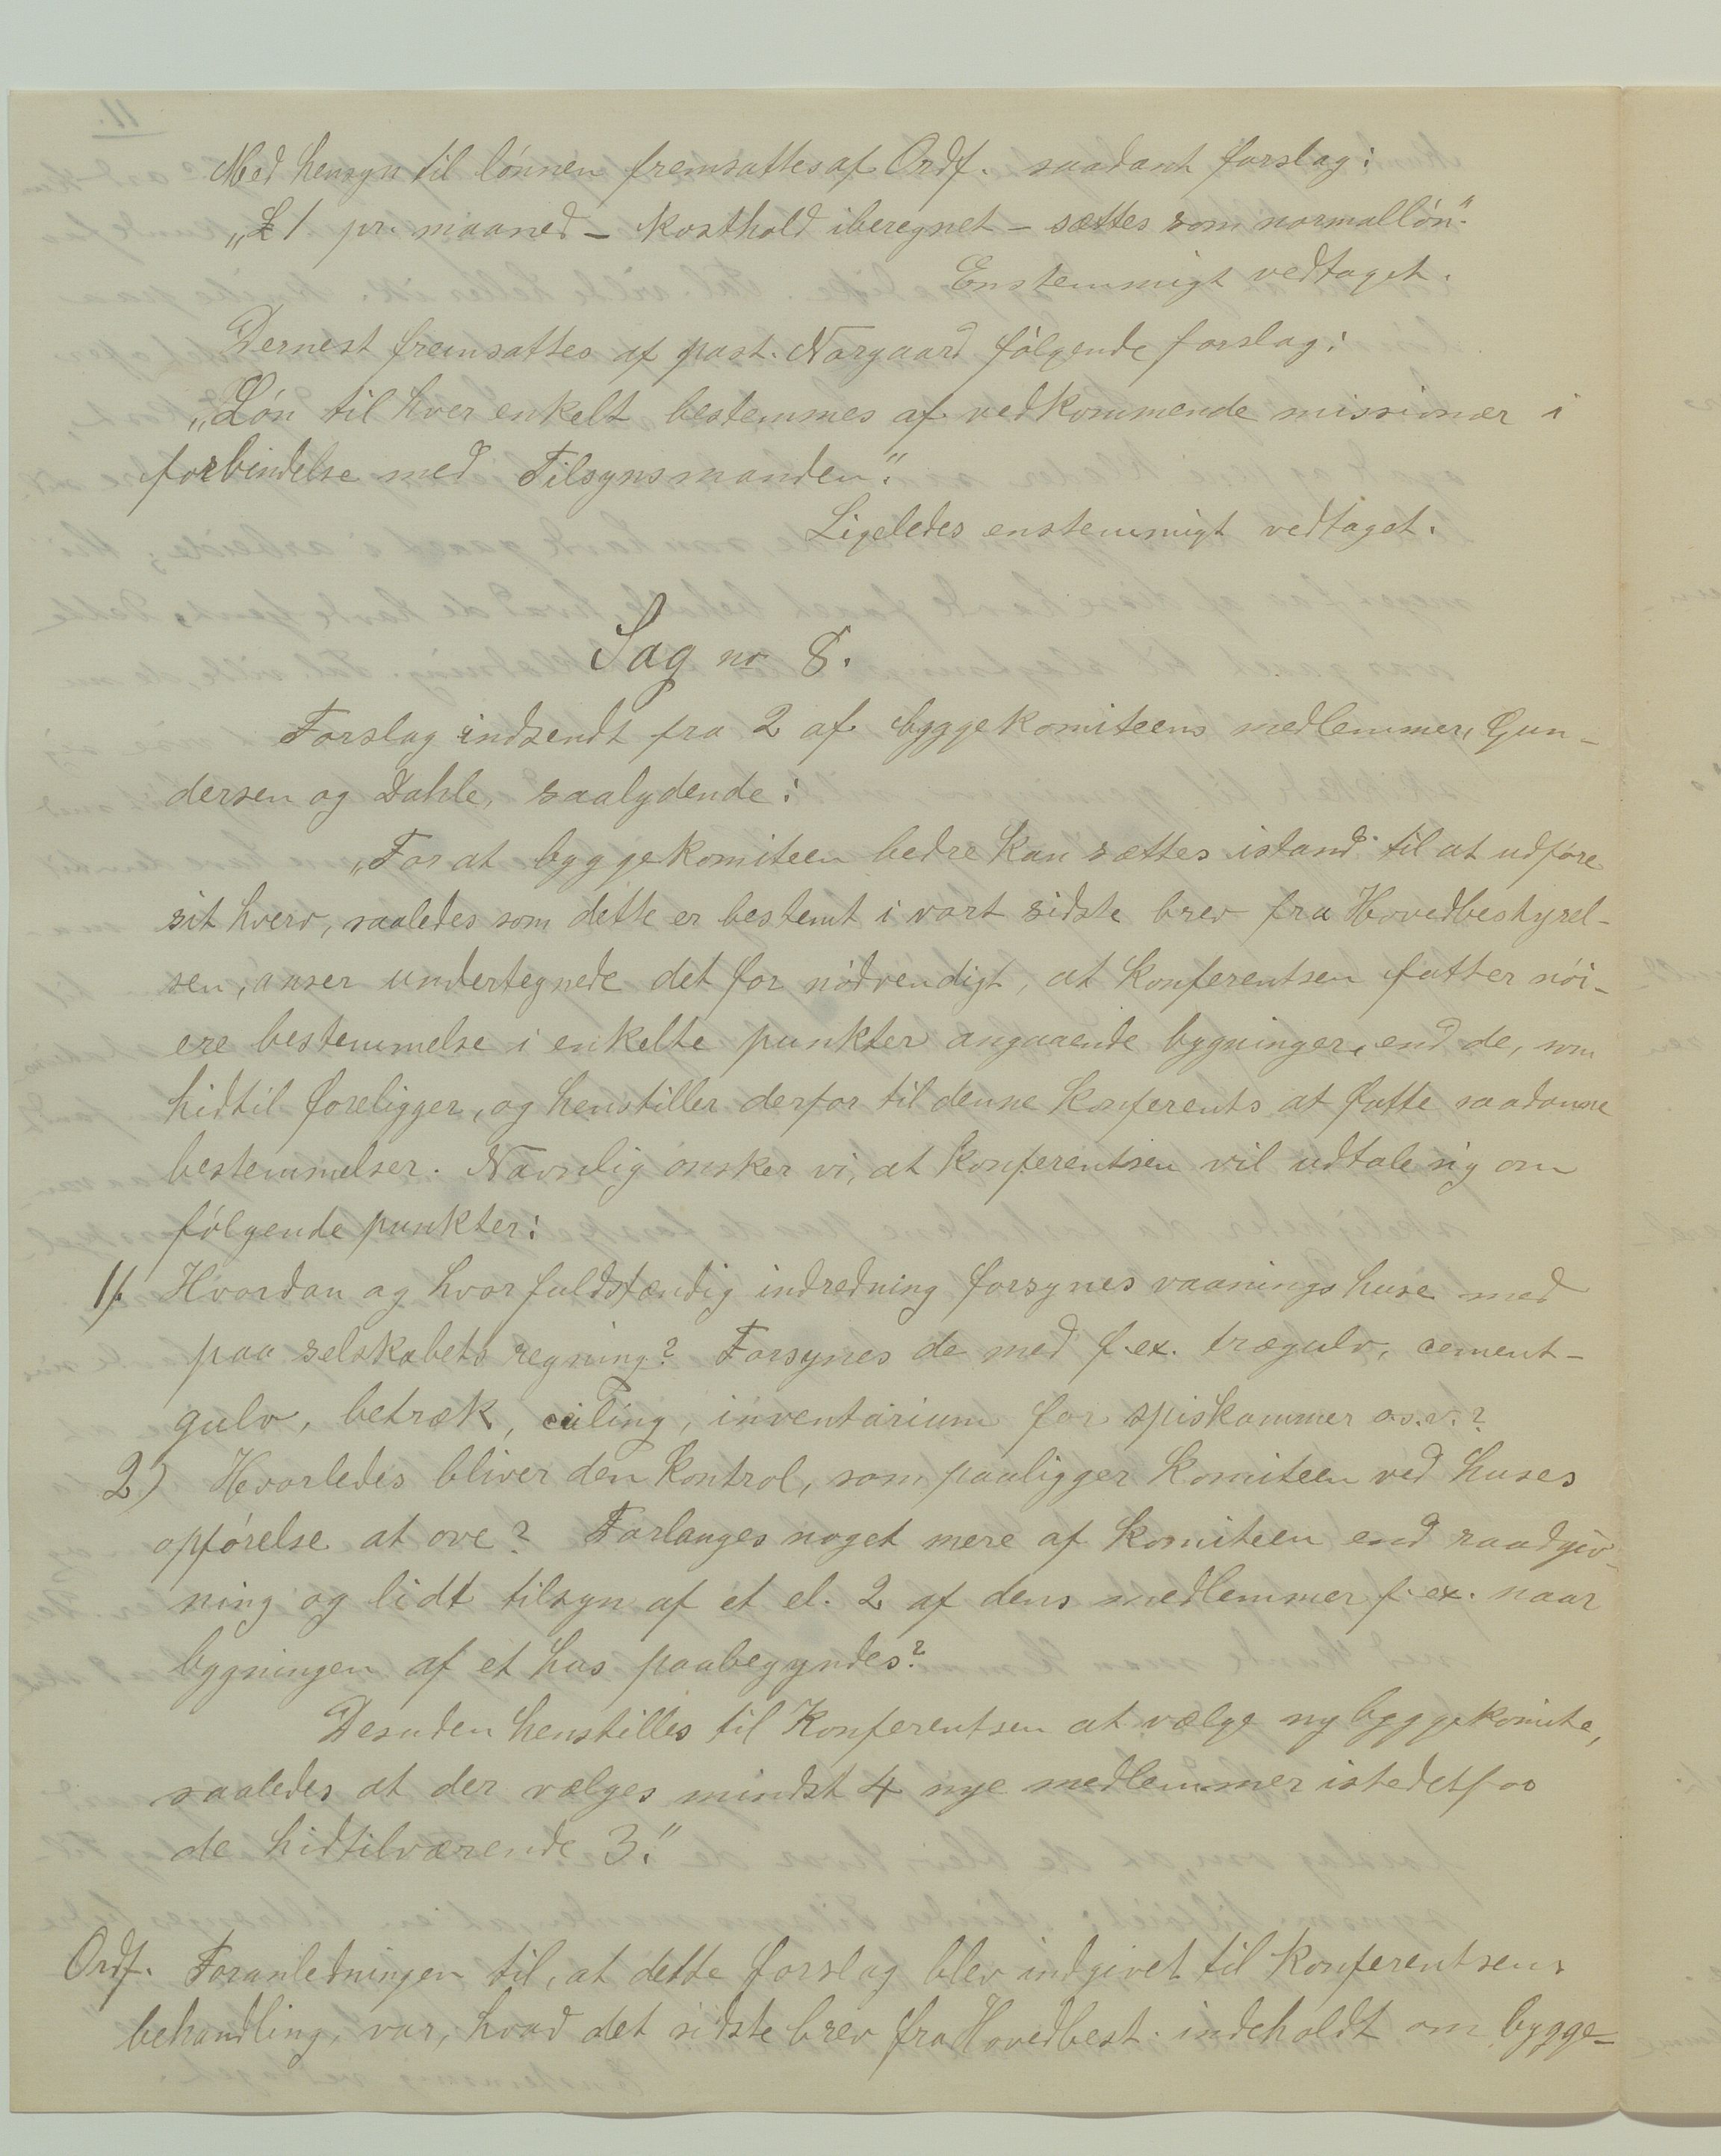 Med hensyn til lønnen fremsattes af Ordf. saadant forslag:
„£1 pr. maaned – kosthold iberegnet – sættes som normalløn".
Enstemmigt vedtaget.
Dernest fremsattes af past. Norgaard følgende forslag:
„Løn til hver enkelt bestemmes af vedkommende missionær i
forbindelse med Tilsynsmanden".
Ligeledes enstemmigt vedtaget.
Sag nr 8.
Forslag indsendt fra 2 af byggekomiteens medlemmer, Gun-
dersen og Dahle, saalydende:
„For at byggekomiteen bedre kan sættes istand til at udføre
sit hverv, saaledes som dette er bestemt i vort sidste brev fra Hovedbestyrel-
sen, anser undertegnede det for nødvendigt, at Konferentsen fatter nøi-
ere bestemmelse i enkelte punkter angaaende bygninger, end de, som
hidtil foreligger, og henstiller derfor til denne Konferents at fatte saadanne
bestemmelser. Navnlig ønsker vi, at Konferentsen vil udtale sig om
følgende punkter:
1/. Hvordan og hvor fuldstændig indredning forsynes vaaningshuse med
paa selskabets regning? Forsynes de med f.ex. trægulv, cement-
gulv, betræk, ceiling, inventarium for spiskammer o.s.v.?
2) Hvorledes bliver den Kontrol, som paaligger Komiteen ved huses
opførelse at øve? Forlanges noget mere af Komiteen end raadgiv-
ning og lidt tilsyn af et el. 2 af dens medlemmer f.ex. naar
bygningen af et hus paabegyndes?
Desuden henstilles til Konferentsen at vælge ny byggekomite,
saaledes at der vælges mindst 4 nye medlemmer istedetfor
de hidtilværende 3."
Ordf. Foranledningen til, at dette forslag blev indgivet til Konferentsens
behandling, var, hvad det sidste brev fra Hovedbest. indeholdt om bygge-